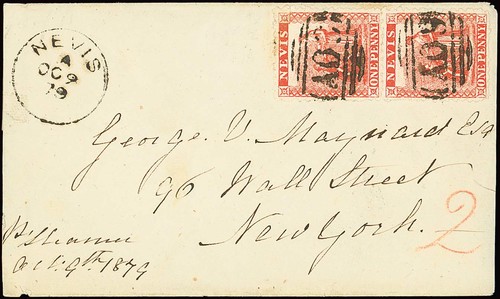 NEVIS
A
OC 9
79
NEVIS
ONE PENNY
A09
NEVIS
ONE PENNY
A09
George. V. Maynard Esq
96 Wall Street
New York.
2
Pr Steamer
Oct. 9th. 1879